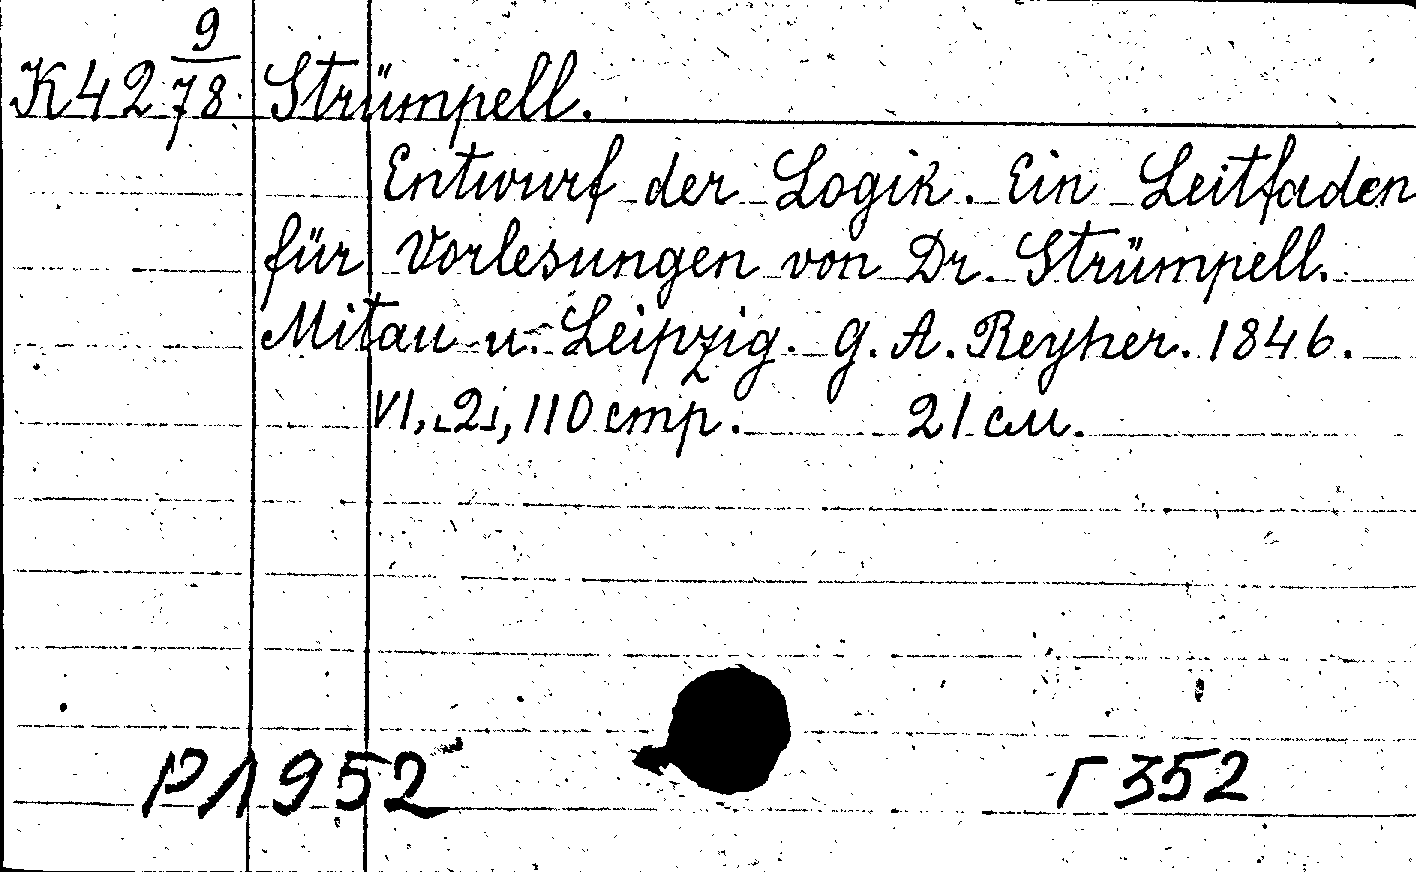 K42 9/78 Strümpell.
Entwurf der Logik. Ein Leitfaden
für Vorlesungen von Dr. Strümpell.
Mitau u. Leipzig. G. A. Reyher. 1846.
VI, [2], 110 стр. 21 см.
РЛ 952 Г 352